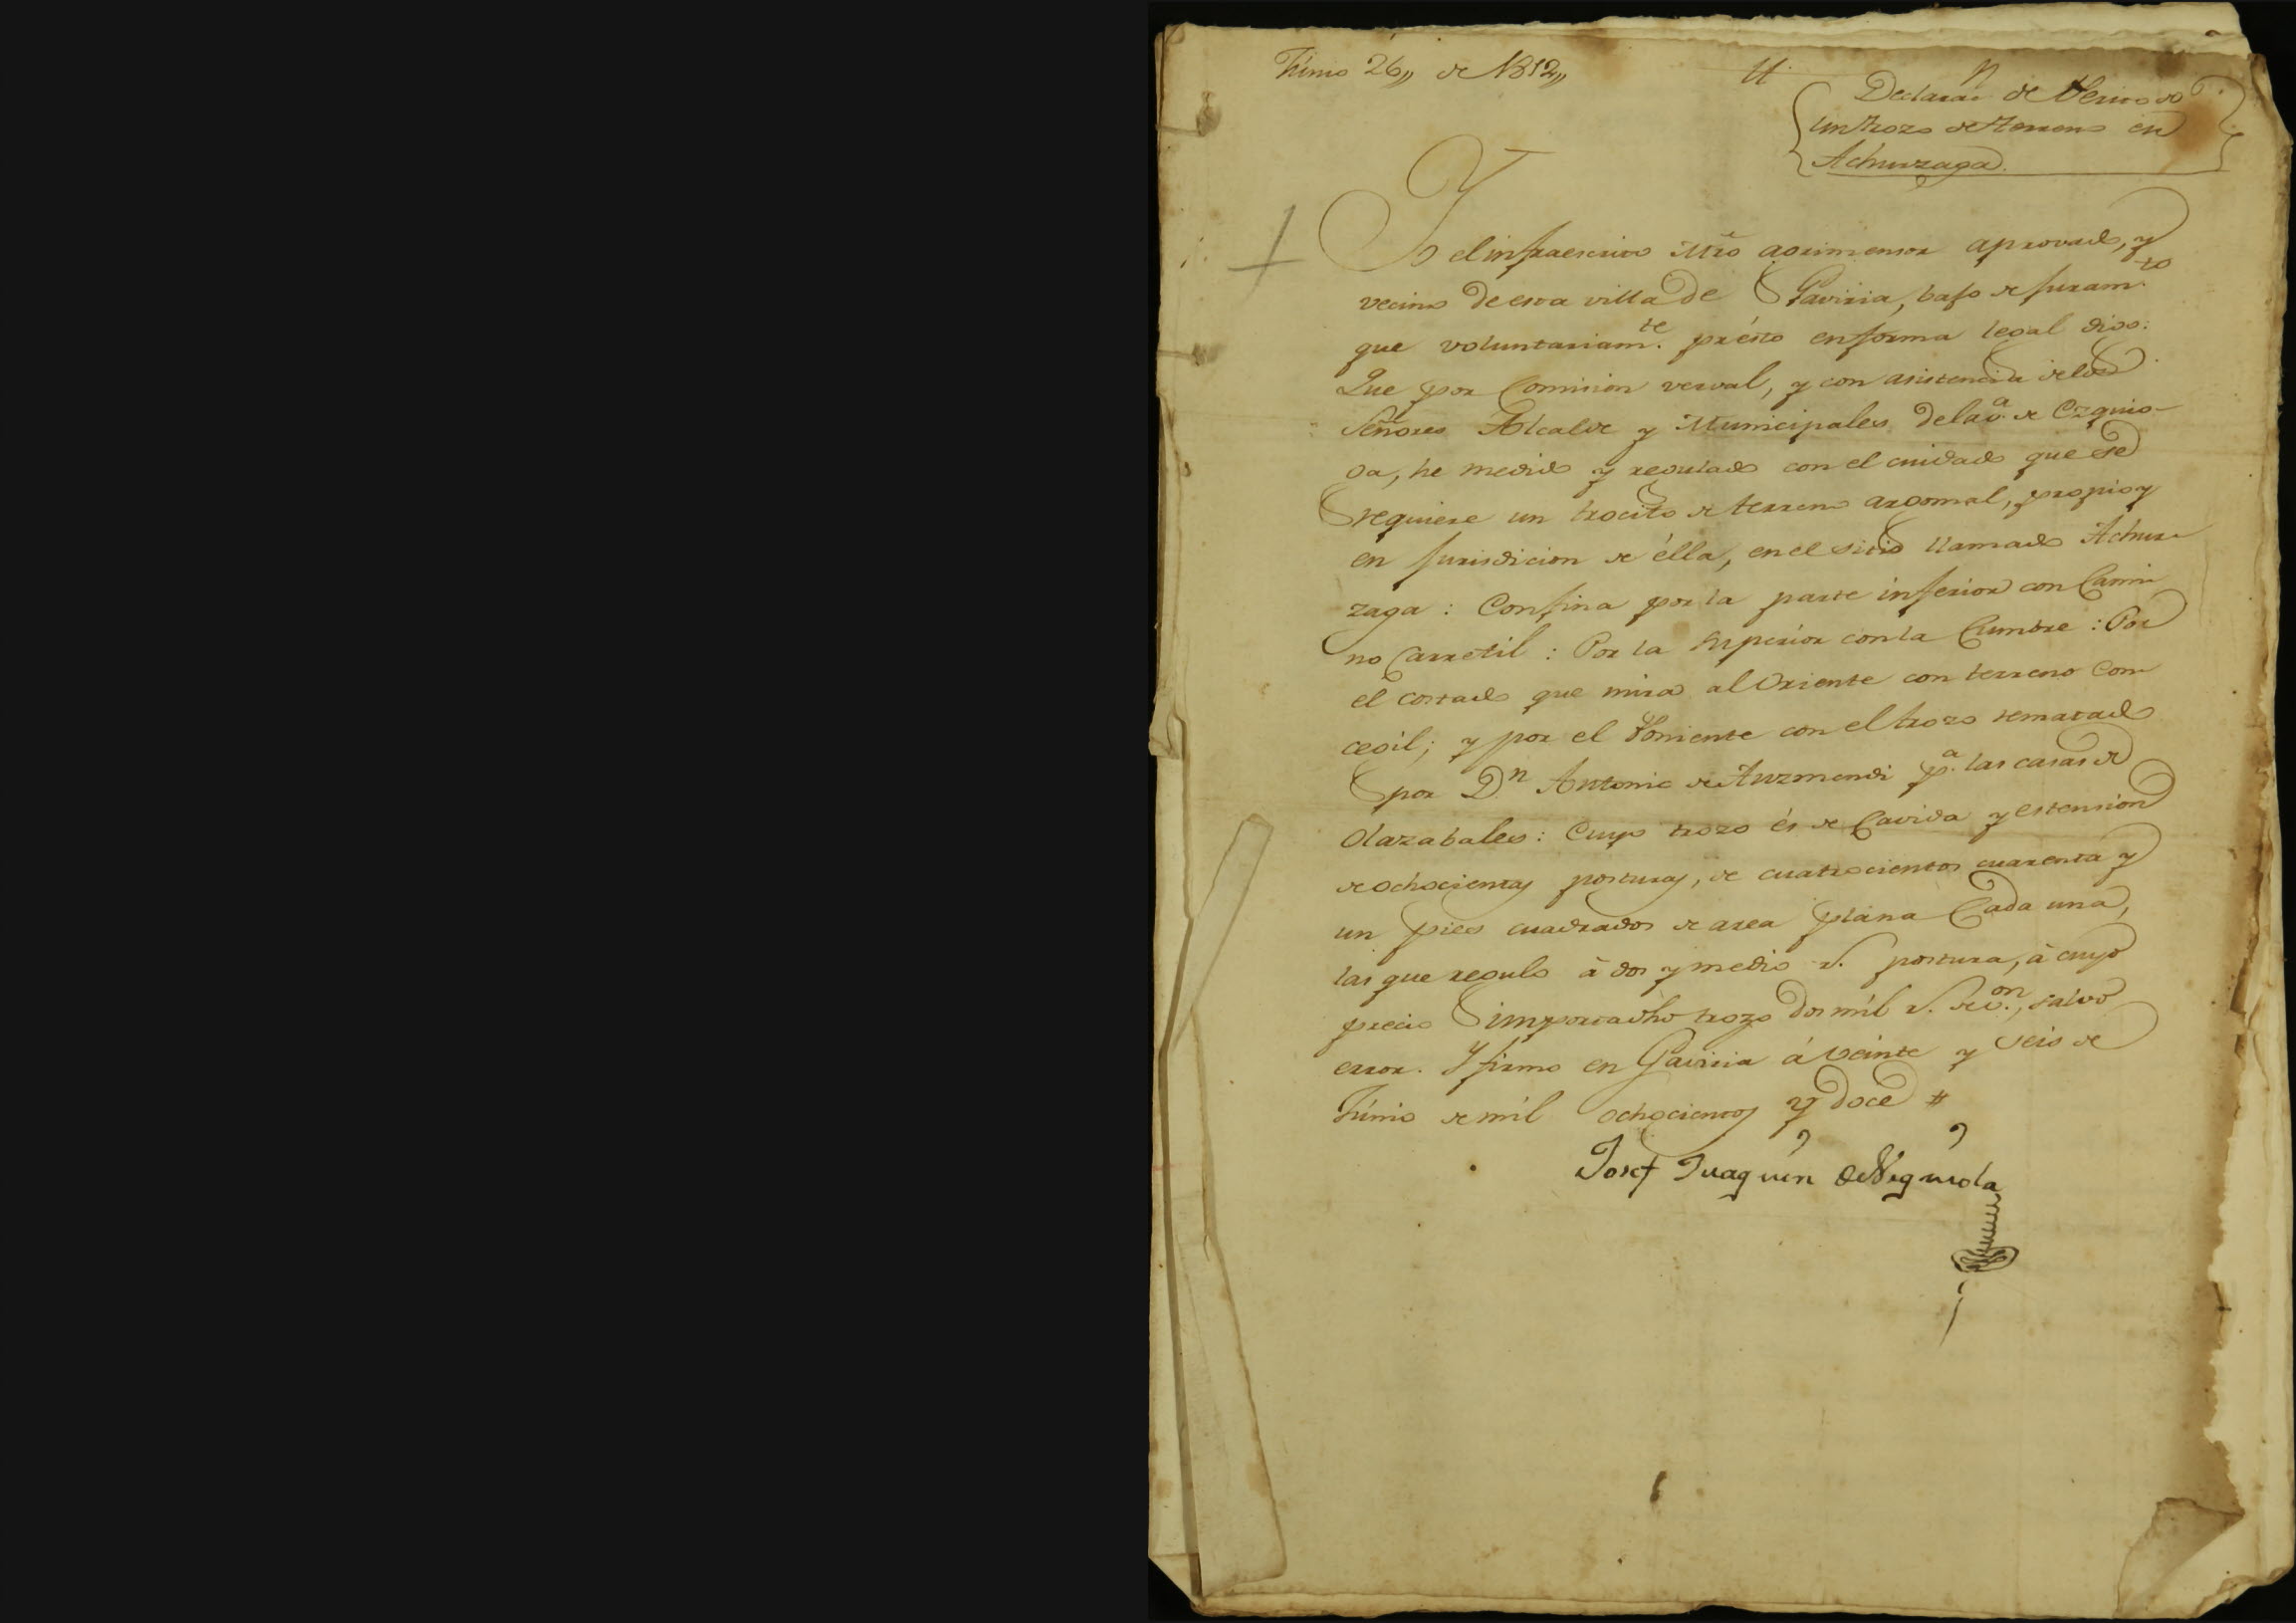 Junio 26,, de 1812,,
11.
Declaraⁿ de Perito de
un trozo de terreno en
Achurzaga.
Yo el infraescrito Mro agrimensor aprovado, y
vecino de esta villa de Gaviria, bajo de juram.to
que voluntariam.te présto en forma legal digo:
Que por Comision verval, y con asistencia de los
Señores Alcalde y Municipales de la v.a de Ezquio-
ga, he medido y regulado con el cuidado que se
requiere un trocito de terreno argomal, propio y
en jurisdicion de élla, en el sitio llamado Achur-
zaga: Confina por la parte inferior con Cami-
no Carretil: Por la superior con la Cumbre: Por
el costado que mira al Oriente con terreno Con-
cegil; y por el Poniente con el trozo rematado
por D.n Antonio de Auzmendi p.a las casas de
Olazabales: Cuyo trozo és de Cavida y estension
de ochocientas posturas, de cuatrocientos cuarenta y
un pies cuadrados de area plana Cada una,
las que regulo à dos y medio r. postura, à cuyo
precio importa dho trozo dos mil r. de v.on, salvo
error. Y firmo en Gaviria á veinte y seis de
Junio de mil ochocientos y doce #
Josef Juaquin de